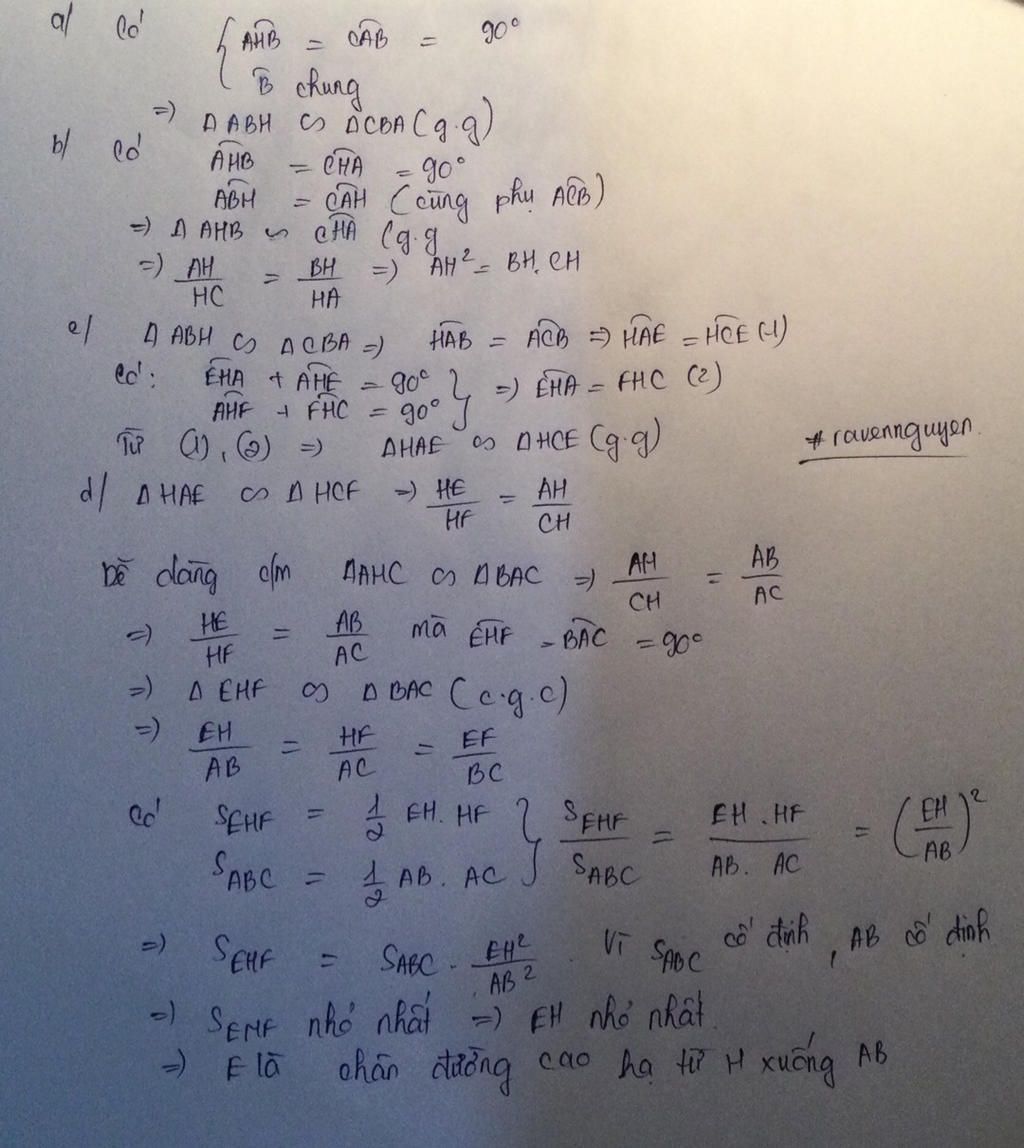 a/ Có { AHB = CAB = 90°
B chung
=> ∆ ABH ∽ ∆CBA (g.g)
b/ Có AHB = CHA = 90°
ABH = CAH (cùng phụ ACB)
=> ∆ AHB ∽ CHA (g.g
=> AH/HC = BH/HA => AH² = BH.CH
c/ ∆ ABH ∽ ∆CBA => HAB = ACB => HAE = HCE (1)
Có: EHA + AHE = 90°
AHF + FHC = 90° } => EHA = FHC (2)
Từ (1), (2) => ∆HAE ∽ ∆HCE (g.g)
#ravennguyen.
d/ ∆ HAE ∽ ∆ HCF => HE/HF = AH/CH
Dễ dàng c/m ∆AHC ∽ ∆BAC => AH/CH = AB/AC
=> HE/HF = AB/AC mà EHF = BAC = 90°
=> ∆ EHF ∽ ∆ BAC (c.g.c)
=> EH/AB = HF/AC = EF/BC
Có S_EHF = 1/2 EH.HF
S_ABC = 1/2 AB.AC } S_EHF/S_ABC = EH.HF/AB.AC = (EH/AB)²
=> S_EHF = S_ABC . EH²/AB². Vì S_ABC cố định, AB cố định
=> S_EHF nhỏ nhất => EH nhỏ nhất.
=> E là chân đường cao hạ từ H xuống AB